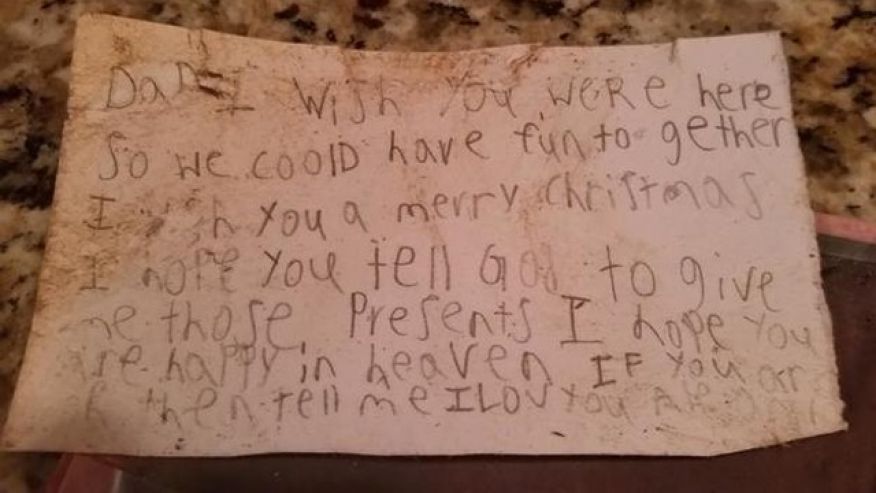 Dad I wish you were here
So we coolD have fun to gether
I wish you a merry christmas
I hope you tell God to give
me those Presents I hope you
are happy in heaven IF you ar
then tell me I LOV you